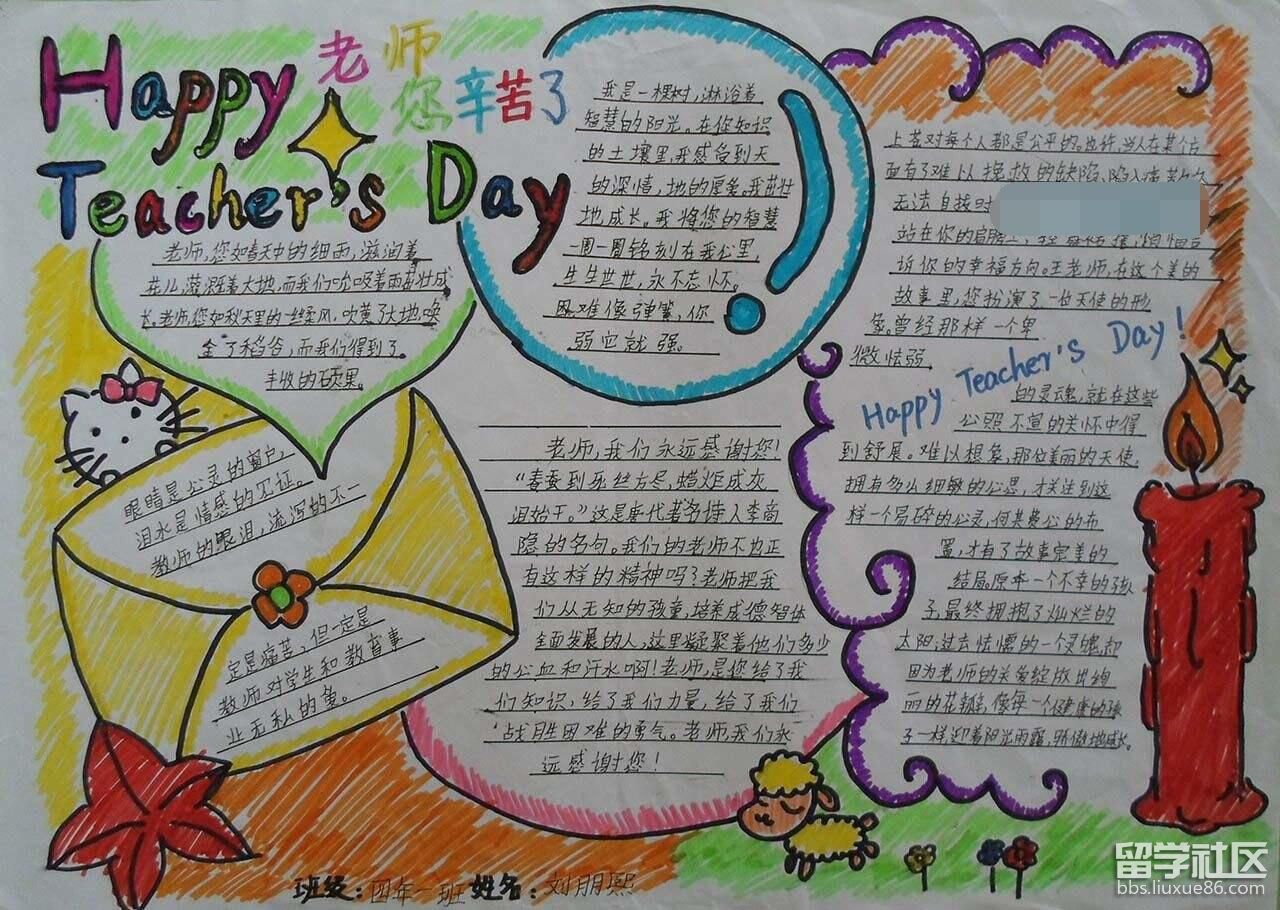 Happy
Teacher's Day
老师
您辛苦了
老师,您如春天中的细雨,滋润着
花儿,灌溉着大地,而我们吮吸着雨茁壮成
长。老师,您如秋天里的一丝柔风,吹黄了大地,唤
金了稻谷,而我们得到了
丰收的硕果。
我是一棵树,淋浴着
智慧的阳光。在您知识
的土壤里,我感受到天
的深情,地的厚爱。我茁壮
地成长。我将您的智慧
一圈一圈铭刻在我心里,
生生世世,永不忘怀。
困难像弹簧,你
弱它就强。
眼睛是心灵的窗户,
泪水是情感的见证。
教师的眼泪,流泻的不一
定是痛苦,但一定是
教师对学生和教育事
业无私的爱。
老师,我们永远感谢您!
“春蚕到死丝方尽,蜡炬成灰
泪始干。”这是唐代著名诗人李商
隐的名句。我们的老师不也正
有这样的精神吗?老师把我
们从无知的孩童,培养成德智体
全面发展的人,这里凝聚着他们多少
的心血和汗水啊!老师,是您给了我
们知识,给了我们力量,给了我们
战胜困难的勇气。老师,我们永
远感谢您!
上苍对每个人都是公平的。也许,当人在某个方
面有了难以挽救的缺陷,陷入痛苦
无法自拔时
站在你的肩膀上,
诉你的幸福方向。王老师,在这个美的
故事里,您扮演了一位天使的形
象。曾经那样一个卑
微怯弱
Happy Teacher's Day!
的灵魂,就在这些
心照不宣的关怀中得
到舒展。难以想象,那位美丽的天使,
拥有多么细敏的心思,才关注到这
样一个易碎的心灵,何其费心的布
置,才有了故事完美的
结局。原本一个不幸的孩
子,最终拥抱了灿烂的
太阳;过去怯懦的一个灵魂,却
因为老师的关爱绽放出绚
丽的花瓣,像每一个健康的孩
子一样,迎着阳光雨露,骄傲地成长。
班级:四年一班 姓名:刘朋熙
留学社区
bbs.liuxue86.com